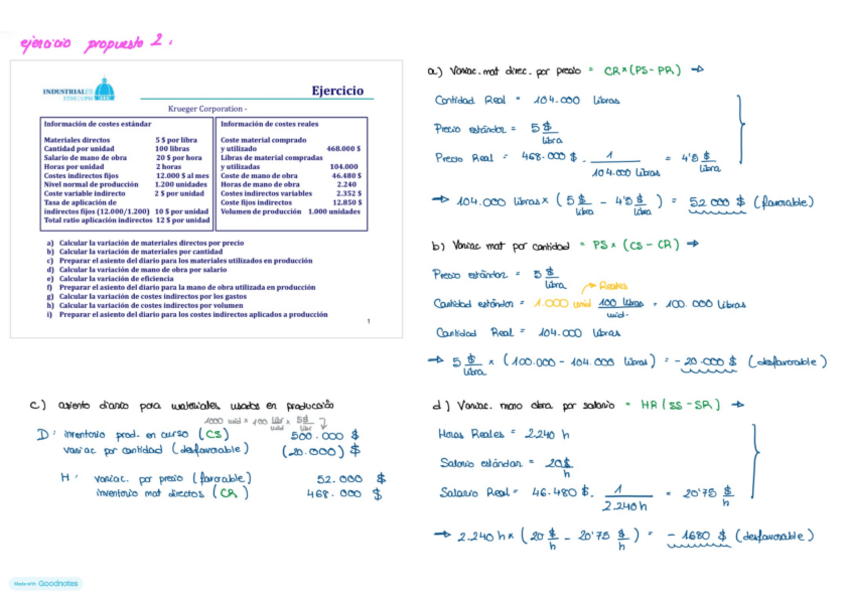 ejercicio propuesto 2.
INDUSTRIALES
ETSII | UPM
Ejercicio
Krueger Corporation -
Información de costes estándar
Materiales directos 5 $ por libra
Cantidad por unidad 100 libras
Salario de mano de obra 20 $ por hora
Horas por unidad 2 horas
Costes indirectos fijos 12.000 $ al mes
Nivel normal de producción 1.200 unidades
Coste variable indirecto 2 $ por unidad
Tasa de aplicación de
indirectos fijos (12.000/1.200) 10 $ por unidad
Total ratio aplicación indirectos 12 $ por unidad
Información de costes reales
Coste material comprado
y utilizado 468.000 $
Libras de material compradas
y utilizadas 104.000
Coste de mano de obra 46.480 $
Horas de mano de obra 2.240
Costes indirectos variables 2.352 $
Coste fijos indirectos 12.850 $
Volumen de producción 1.000 unidades
a) Calcular la variación de materiales directos por precio
b) Calcular la variación de materiales por cantidad
c) Preparar el asiento del diario para los materiales utilizados en producción
d) Calcular la variación de mano de obra por salario
e) Calcular la variación de eficiencia
f) Preparar el asiento del diario para la mano de obra utilizada en producción
g) Calcular la variación de costes indirectos por los gastos
h) Calcular la variación de costes indirectos por volumen
i) Preparar el asiento del diario para los costes indirectos aplicados a producción
1
a) Variac. mat direc. por precio = CR×(PS-PR) →
Cantidad Real = 104.000 libras
Precio estándar = 5 $/libra
Precio Real = 468.000 $ . 1/104.000 libras = 4'5 $/libra
→ 104.000 libras × (5 $/libra - 4'5 $/libra) = 52.000 $ (favorable)
b) Variac mat por cantidad = PS × (CS - CR) →
Precio estándar = 5 $/libra
→ Reales
Cantidad estándar = 1.000 unid 100 libras/unid. = 100.000 libras
Cantidad Real = 104.000 libras
→ 5 $/libra × (100.000 - 104.000 libras) = -20.000 $ (desfavorable)
c) asiento diario para materiales usados en producción
1000 unid × 100 libr/unid × 5$/libr
D: inventario prod. en curso (CS) 500.000 $
variac por cantidad (desfavorable) (20.000) $
H: variac. por precio (favorable) 52.000 $
inventario mat directos (CR) 468.000 $
d) Variac. mano obra por salario = HR (SS-SR) →
Horas Reales = 2.240 h
Salario estándar = 20 $/h
Salario Real = 46.480 $. 1/2.240h = 20'75 $/h
→ 2.240 h × (20 $/h - 20'75 $/h) = -1680 $ (desfavorable)
Made with Goodnotes